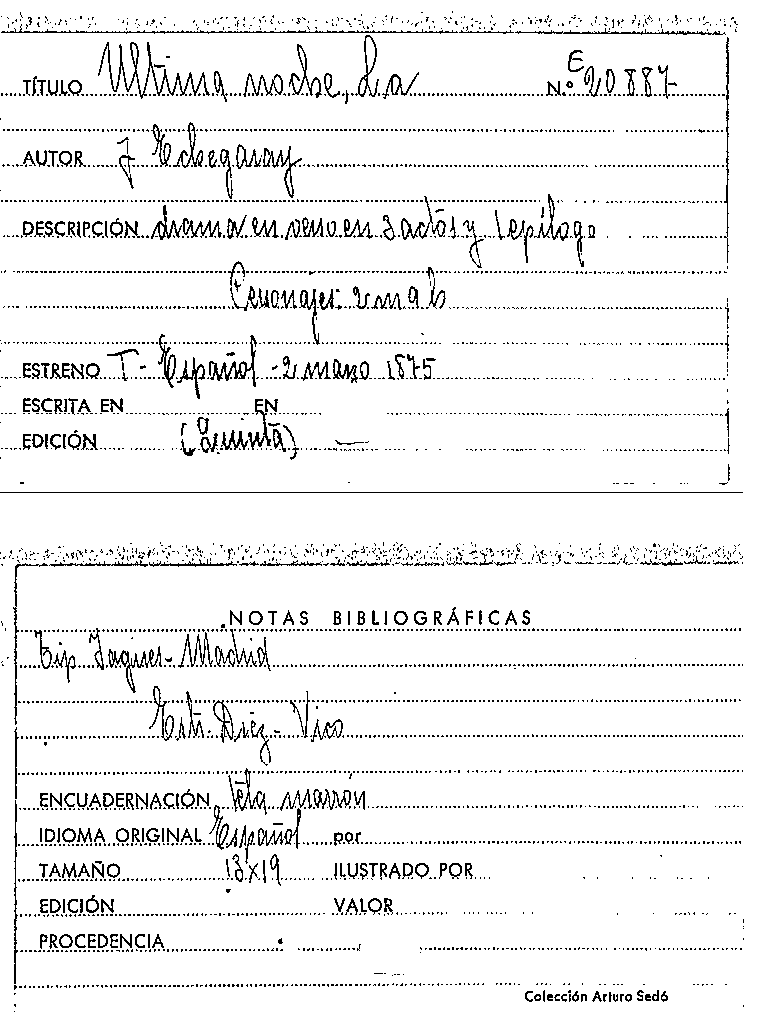 TÍTULO Ultima noche, La N.º E 20887
AUTOR J Echegaray
DESCRIPCIÓN drama en verso en 3 actos y 1 epílogo
Personajes: 2m 9h
ESTRENO T- Español - 2 marzo 1875
ESCRITA EN EN
EDICIÓN (Quinta) —
NOTAS BIBLIOGRÁFICAS
Tip. Madrid
Estr. Díez- Vico
ENCUADERNACIÓN tela marrón
IDIOMA ORIGINAL Español por
TAMAÑO 13x19 ILUSTRADO POR
EDICIÓN VALOR
PROCEDENCIA
Colección Arturo Sedó